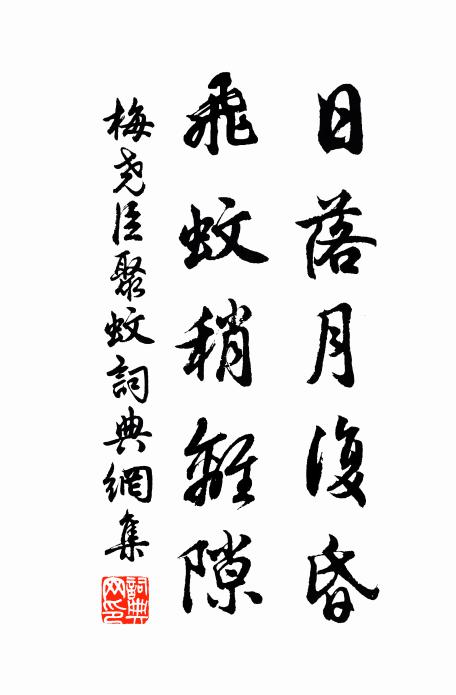 日落月復昏
飛蚊稍離隙
梅堯臣聚蚊詞典網集
詞典網印